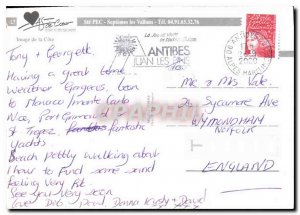 Sté PEC - Septèmes les Vallons - Tél. 04.91.65.32.76
Image de la Côte
ANTIBES
JUAN LES PINS
2000
Tony + Georgett
Having a great time...
Weather Gorgeous, Gon
to Monaco / Monte Carlo
Nice, Port Grimaud
St Tropez, fantastic
Yachts.
Beach pretty walking about
1 hour to find some sand
feeling very fit
See you very soon
love Deb Paul, Donna Kirsty David
Mr & Mrs Vale
20, Sycamore Ave
WYMONDHAM
NORFOLK
ENGLAND